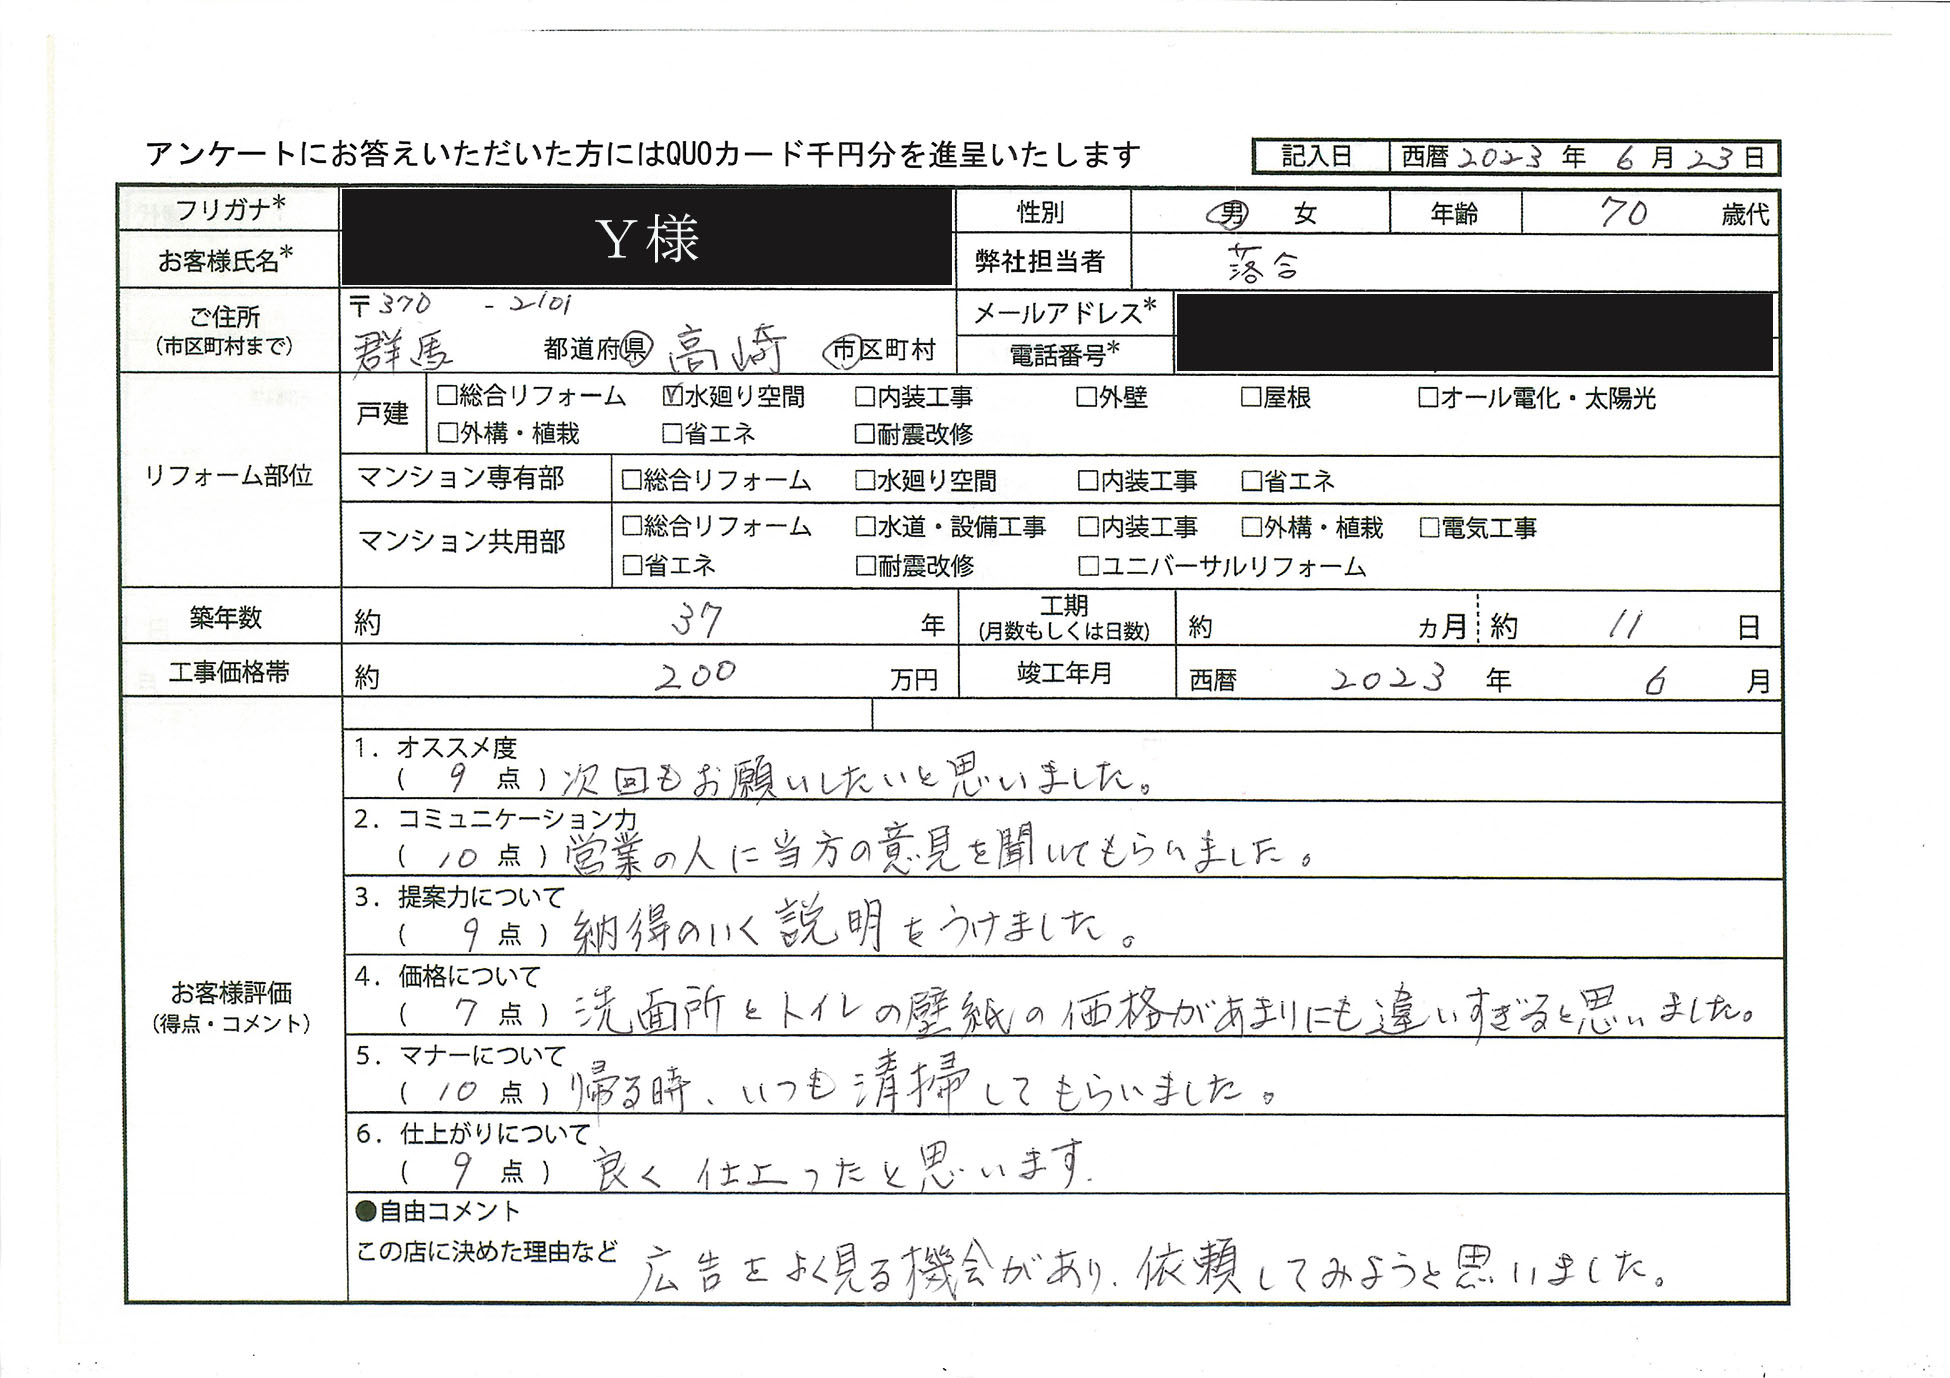 アンケートにお答えいただいた方にはQUOカード千円分を進呈いたします
記入日 西暦 2023 年 6 月 23 日
フリガナ* Y様 性別 男 女 年齢 70 歳代
お客様氏名* 弊社担当者 落合
ご住所 (市区町村まで) 〒370 - 2101 メールアドレス*
群馬 都道府県 高崎 市区町村 電話番号*
リフォーム部位
戸建 □総合リフォーム ☑水廻り空間 □内装工事 □外壁 □屋根 □オール電化・太陽光
□外構・植栽 □省エネ □耐震改修
マンション専有部 □総合リフォーム □水廻り空間 □内装工事 □省エネ
マンション共用部 □総合リフォーム □水道・設備工事 □内装工事 □外構・植栽 □電気工事
□省エネ □耐震改修 □ユニバーサルリフォーム
築年数 約 37 年 工期 (月数もしくは日数) 約 ヵ月 約 11 日
工事価格帯 約 200 万円 竣工年月 西暦 2023 年 6 月
お客様評価
(得点・コメント)
1. オススメ度
( 9 点 ) 次回もお願いしたいと思いました。
2. コミュニケーション力
( 10 点 ) 営業の人に当方の意見を聞いてもらいました。
3. 提案力について
( 9 点 ) 納得のいく説明をうけました。
4. 価格について
( 7 点 ) 洗面所とトイレの壁紙の価格があまりにも違いすぎると思いました。
5. マナーについて
( 10 点 ) 帰る時、いつも清掃してもらいました。
6. 仕上がりについて
( 9 点 ) 良く仕上ったと思います.
●自由コメント
この店に決めた理由など 広告をよく見る機会があり、依頼してみようと思いました。